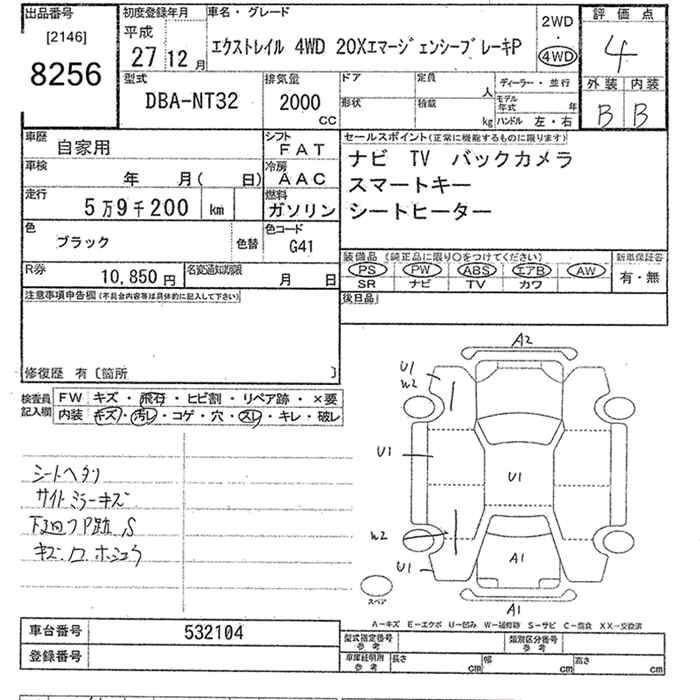 出品番号
[2146]
8256
初度登録年月
平成
27 12 月
車名・グレード
エクストレイル 4WD 20XエマージェンシーブレーキP
2WD
・
4WD
評価点
4
外装 内装
B B
型式
DBA-NT32
排気量
2000
CC
ドア
形状
定員
人
積載
kg
ディーラー・並行
モデル年式 年
ハンドル 左・右
車歴
自家用
シフト
FAT
車検
年 月( 日)
冷房
AAC
走行
5万9千200 km
燃料
ガソリン
色
ブラック
色替
色コード
G41
R券
10,850円
名変通知期限
月 日
セールスポイント(正常に機能するものに限ります)
ナビ TV バックカメラ
スマートキー
シートヒーター
装備品 (純正品に限り○をつけてください)
PS PW ABS エアB AW
SR ナビ TV カワ
新車保証書
有・無
後日品
注意事項申告欄(不具合内容等は具体的に記入して下さい)
修復歴 有〔箇所 〕
検査員記入欄
FW キズ・飛石・ヒビ割・リペア跡・×要
内装 キズ・汚レ・コゲ・穴・スレ・キレ・破レ
シートヘタリ
サイドミラーキズ
下廻フP跡 S
A2
U1
W2
U1
U1
W2
U1
A1
A1
スペア
A-キズ E-エクボ U-凹み W-補修跡 S-サビ C-腐食 XX-交換済
車台番号 532104
登録番号
型式指定番号
参考
類別区分番号
参考
車庫証明用
参考
長さ cm 幅 cm 高さ cm